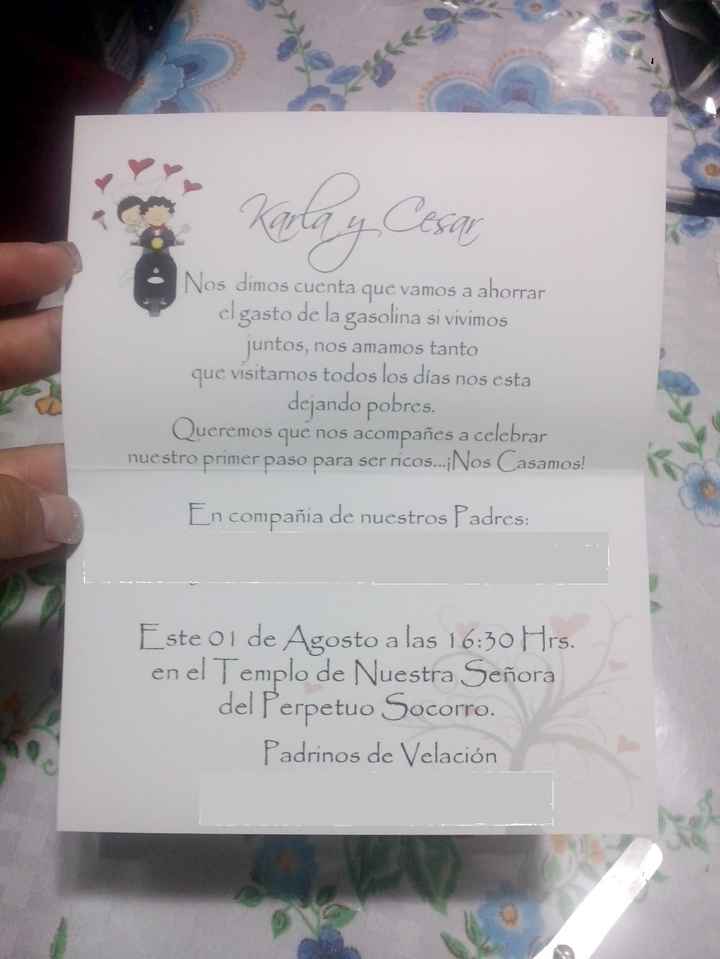 Karla y Cesar
Nos dimos cuenta que vamos a ahorrar
el gasto de la gasolina si vivimos
juntos, nos amamos tanto
que visitarnos todos los días nos esta
dejando pobres.
Queremos que nos acompañes a celebrar
nuestro primer paso para ser ricos...¡Nos Casamos!
En compañia de nuestros Padres:
Este 01 de Agosto a las 16:30 Hrs.
en el Templo de Nuestra Señora
del Perpetuo Socorro.
Padrinos de Velación